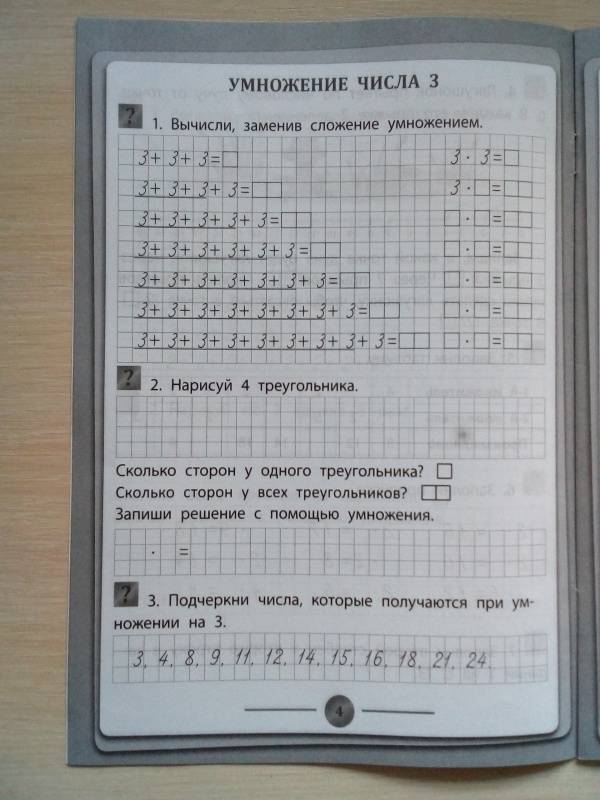 УМНОЖЕНИЕ ЧИСЛА 3
? 1. Вычисли, заменив сложение умножением.
3+ 3+ 3=□ 3 · 3=□
3+ 3+ 3+ 3=□□ 3 · □=□□
3+ 3+ 3+ 3+ 3=□□ □ · □=□□
3+ 3+ 3+ 3+ 3+ 3=□□ □ · □=□□
3+ 3+ 3+ 3+ 3+ 3+ 3=□□ □ · □=□□
3+ 3+ 3+ 3+ 3+ 3+ 3+ 3=□□ □ · □=□□
3+ 3+ 3+ 3+ 3+ 3+ 3+ 3+ 3=□□ □ · □=□□
? 2. Нарисуй 4 треугольника.
Сколько сторон у одного треугольника? □
Сколько сторон у всех треугольников? □□
Запиши решение с помощью умножения.
· =
? 3. Подчеркни числа, которые получаются при ум-
ножении на 3.
3, 4, 8, 9, 11, 12, 14, 15, 16, 18, 21, 24.
4